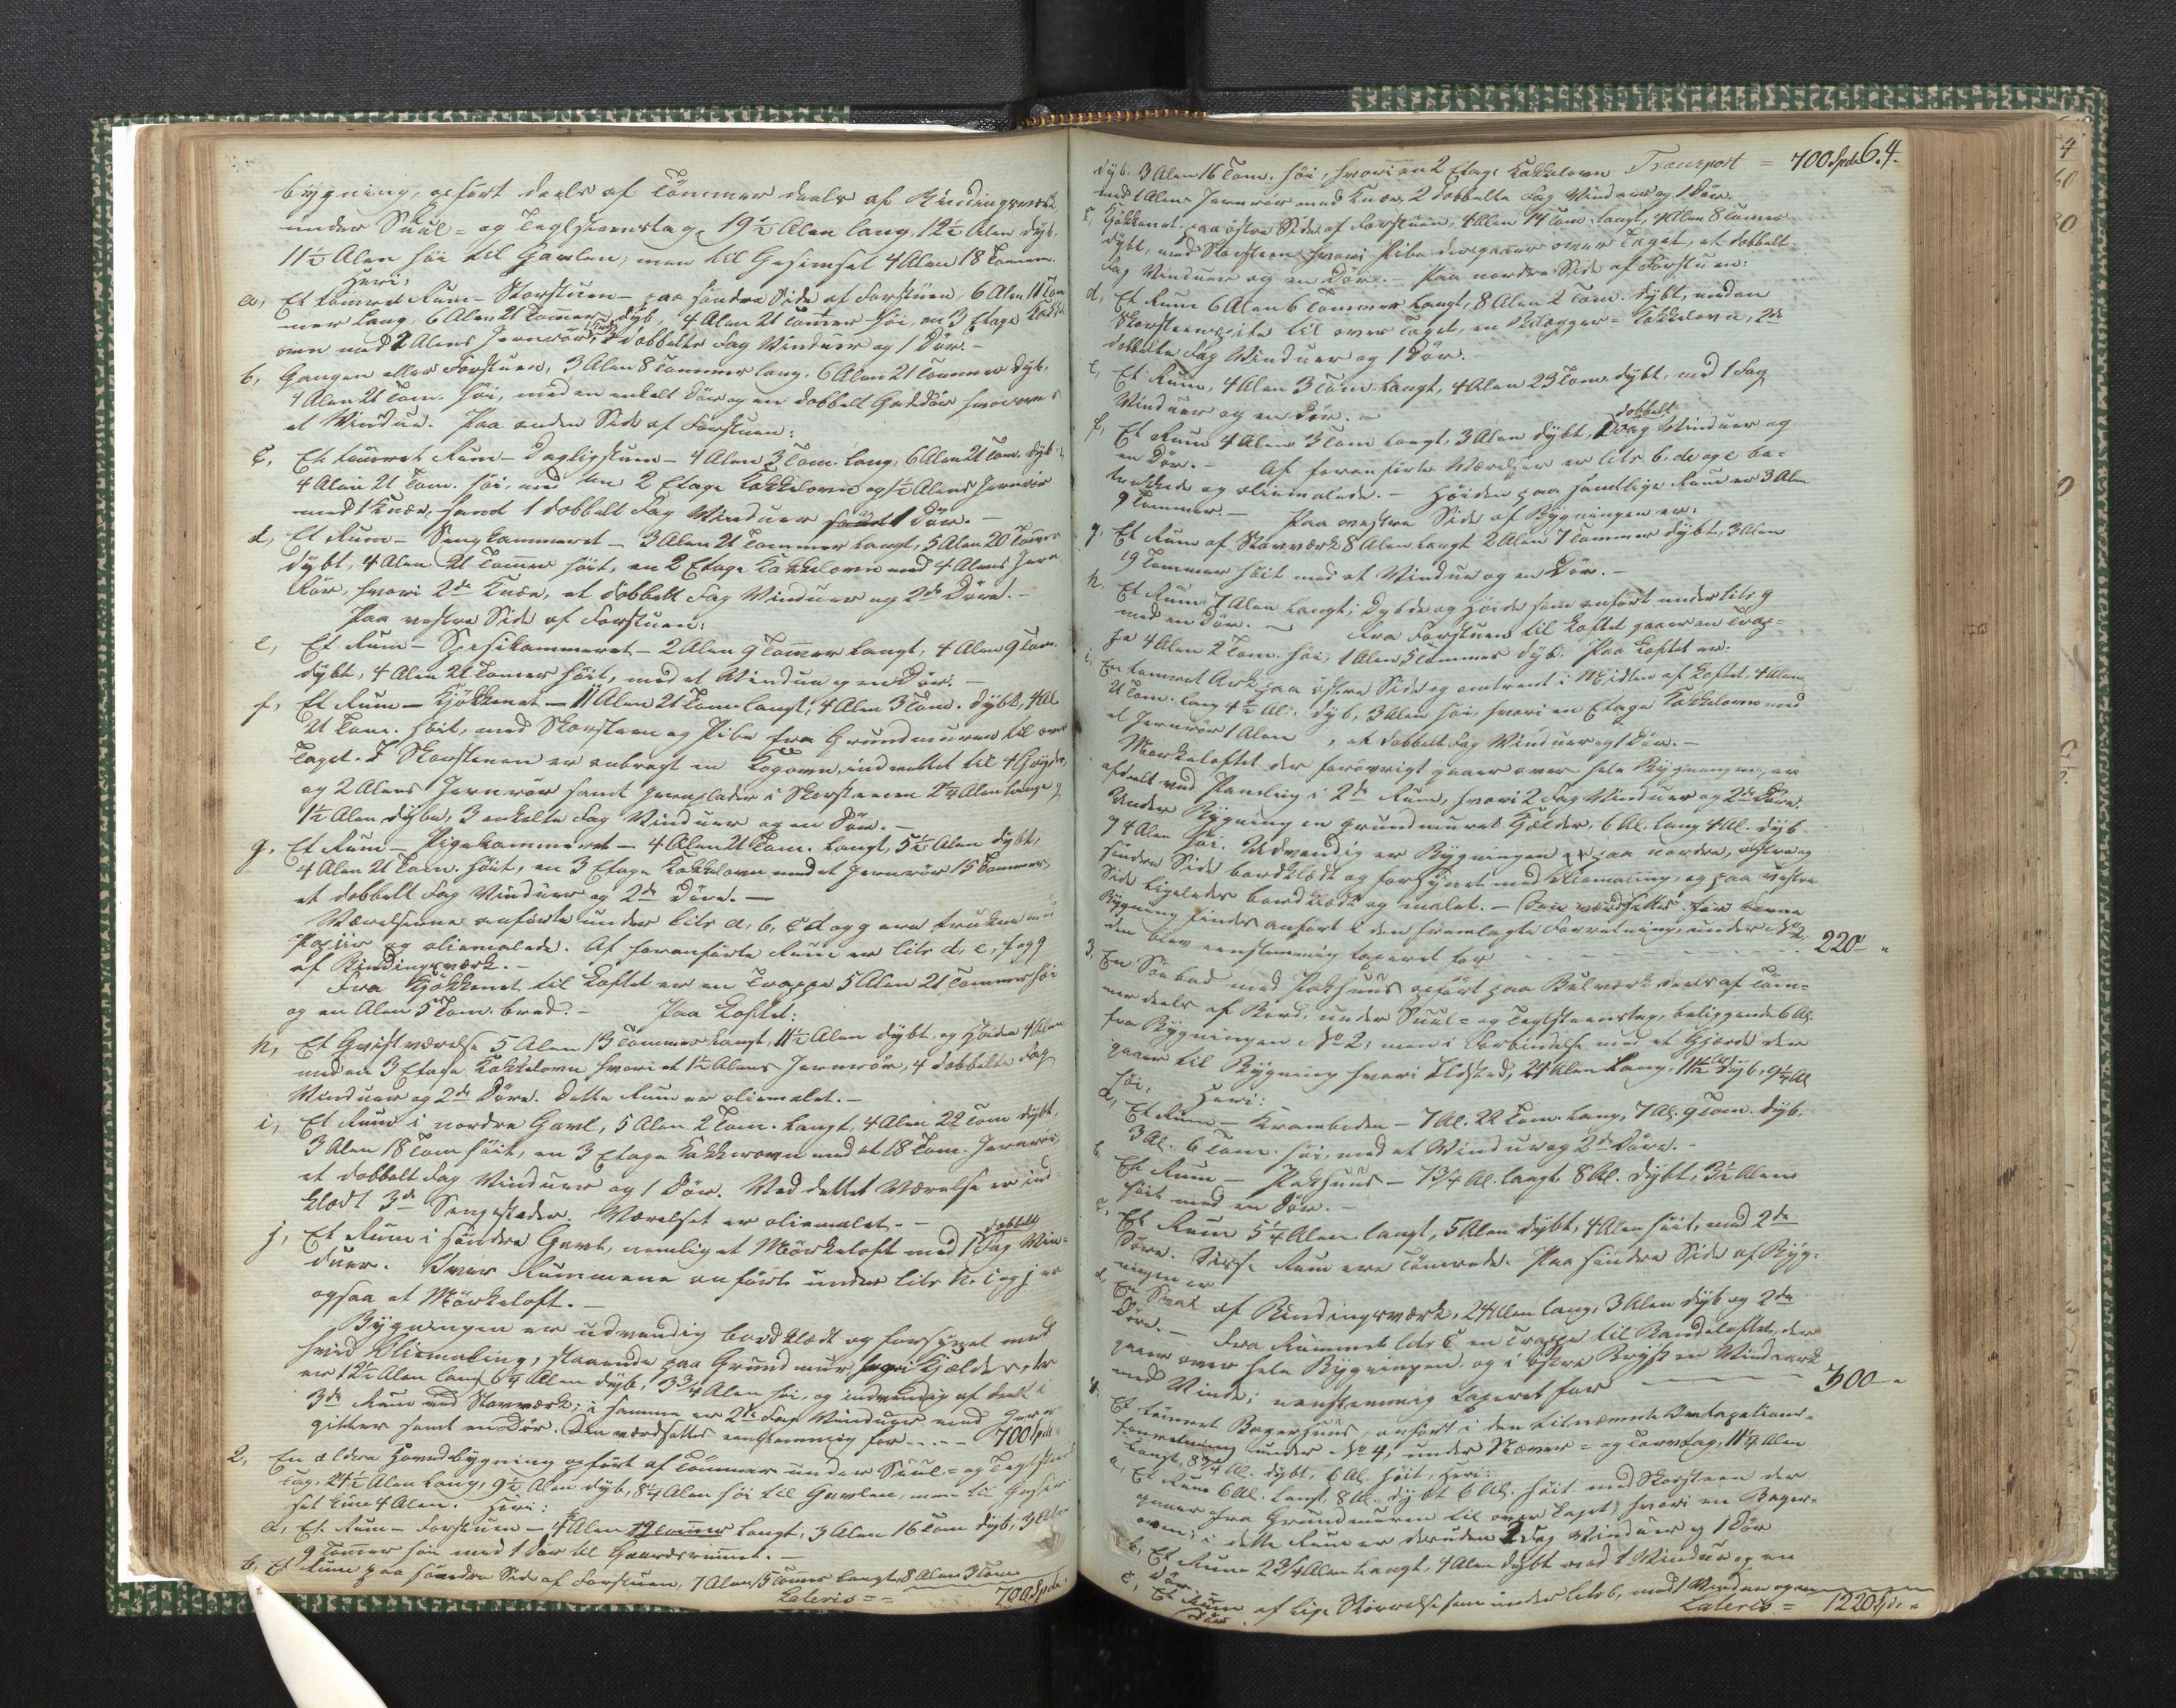 bygning, opført deels af Tømmer deels af Bindingsværk,
under Suul- og Teglsteenstag, 19½ Alen lang, 12½ Alen dyb,
11½ Alen høi til Gavlen, men til Gesimset 4 Alen 18 Tommer.
Heri:
a, Et tømret Rum - Storstuen - paa søndre Side af Forstuen, 6 Alen 11 Tom-
mer lang, 6 Alen 21 Tommer dyb, 4 Alen 21 Tommer høi, en 3 Etage Kakkel-
ovn med 2 Alens Jernrør, dobbelte Fag Vinduer og 1 Dør. -
b, Gangen eller Forstuen, 3 Alen 8 Tommer lang, 6 Alen 21 Tommer dyb,
4 Alen 21 Tom. høi, med en enkelt Dør og en dobbelt Gadedør hvorover
et Vindue. Paa anden Side af Forstuen:
c, Et tømret Rum - Dagligstuen - 4 Alen 3 Tom. lang, 6 Alen 21 Tom. dyb,
4 Alen 21 Tom. høi, med en 2 Etage Kakkelovn og 1½ Alens Jernrør
med 1 Knæ, samt 1 dobbelt Fag Vinduer samt 1 Dør. -
d, Et Rum - Sengkammeret - 3 Alen 21 Tommer langt, 5 Alen 20 Tommer
dybt, 4 Alen 21 Tommer høit, en 2 Etage Kakkelovn med 4 Alens Jern
Rør, hvori 2de Knæe, et dobbelt Fag Vinduer og 2de Døre. -
Paa vestre Side af Forstuen:
e, Et Rum - Spisekammeret - 2 Alen 9 Tommer langt, 4 Alen 9 Tom.
dybt, 4 Alen 21 Tommer høit, med et Vindue og en Dør. -
f, Et Rum - Kjøkkenet - 11 Alen 21 Tom. langt, 4 Alen 3 Tom. dybt, 4 Al.
21 Tom. høit, med Skorsteen og Pibe fra Grundmuren til over
Taget. I Skorstenen er anbragt en Kogovn, indrettet til 4 Gryder,
og 2 Alens Jernrør samt Jernplader i Skorstenen 2¼ Alen lange og
1½ Alen dybe, 3 enkelte Fag Vinduer og en Dør. -
g, Et Rum - Pigekammeret - 4 Alen 21 Tom. langt, 5½ Alen dybt,
4 Alen 21 Tom. høit, en 3 Etage Kakkelovn med et Jernrør 15 Tommer,
et dobbelt Fag Vinduer og 2de Døre. -
Værelserne anførte under Litr a, b, c d og g ere trukne med
Papiir og oliemalede. Af foranførte Rum er Litr d, e, f og g
af Bindingsværk. -
Fra Kjøkkenet til Loftet er en Trappe 5 Alen 21 Tommer høi
og en Alen 5 Tom. bred. - Paa Loftet:
h, Et Qvistværelse 5 Alen 13 Tommer langt, 11½ Alen dybt, og Høiden 4 Alen
med en 3 Etage Kakkelovn hvori et 1½ Alens Jernrør, 4 dobbelte Fag
Vinduer og 2de Døre. Dette Rum er oliemalet. -
i, Et Rum i nordre Gavl, 5 Alen 2 Tom. langt, 4 Alen 22 Tom dybt,
3 Alen 18 Tom høit, en 3 Etage Kakkelovn med et 18 Tom. Jernrør,
et dobbelt Fag Vinduer og 1 Dør. Ved dette Værelse er ind-
klædt 3de Sengesteder. Værelset er oliemalet. -
j, Et Rum i søndre Gavl, nemlig et Mørkeloft med 1 dobbelt Fag Vin-
duer. Over Rummene anførte under Litr h, i og j er
ogsaa et Mørkeloft. -
Bygningen er udvendig bordklædt og forsynet med
hvid Oliemaling, staaende paa Grundmur hvori Kjælder, der
er 12½ Alen lang, 6¼ Alen dyb, 3¾ Alen høi, og indvendig afdeelt i
3de Rum med Stavværk; i samme er 2de Fag Vinduer med Jern
gitter samt en Dør. Den værdsattes eenstemmig for - - - - 700 Spd
2, En ældre Hovedbygning opført af Tømmer under Suul- og Teglsteens
tag, 24½ Alen lang, 9½ Alen dyb, 8¼ Alen høi til Gavlen, men til Gesim-
set kun 4 Alen. Heri:
a, Et Rum - Forstuen - 4 Alen 19 Tommer langt, 3 Alen 16 Tom dyb, 3 Alen
9 Tommer høi med 1 Dør til Gaardsrummet. -
b, Et Rum paa søndre Side af Forstuen, 7 Alen 5 Tommer langt, 8 Alen 3 Tom
Lateris = = 700 Spd.
64.
Transport = 700 Spd
dyb, 3 Alen 16 Tom. høi, hvori en 2 Etage Kakkelovn
med 1 Alens Jernrør med Knæe, 2 dobbelte Fag Vinduer og 1 Dør.
c, Kjøkkenet paa østre Side af Forstuen, 4 Alen 14 Tom. langt, 4 Alen 8 Tommer
dybt, med Skorsteen hvori Pibe der gaaer over Taget, et dobbelt
Fag Vinduer og en Dør. - Paa nordre Side af Forstuen:
d, Et Rum 6 Alen 6 Tommer langt, 8 Alen 2 Tom. dybt, med en
Skorsteenspibe til over Taget, en Bilægger-Kakkelovn, 2de
dobbelte Fag Vinduer og 1 Dør. -
e, Et Rum, 4 Alen 3 Tom. langt, 4 Alen 23 Tom. dybt, med 1 Fag
Vinduer og en Dør. -
f, Et Rum 4 Alen 3 Tom langt, 3 Alen dybt, 1 dobbelt Fag Vinduer og
en Dør. - Af foranførte Værelser er Litr b, d og e be-
trukkede og oliemalede. - Høiden paa samtlige Rum er 3 Alen
9 Tommer. - Paa vestre Side af Bygningen er:
g, Et Rum af Stavværk 8 Alen langt 2 Alen 7 Tommer dybt, 3 Alen
19 Tommer høit med et Vindue og en Dør. -
h, Et Rum 7 Alen langt; Dybde og Høide som anført under Litr g
med en Dør. - Fra Forstuen til Loftet gaaer en Trap-
pe 4 Alen 2 Tom. høi, 1 Alen 5 Tommer dyb. Paa Loftet er:
i, En tømret Ark paa østre Side og omtrent i Midten af Loftet, 4 Alen
21 Tom. lang 4½ Al. dyb, 3 Alen høi, hvori en Etage Kakkelovn med
et Jernrør 1 Alen, et dobbelt Fag Vinduer og 1 Dør. -
Mørkeloftet der forøvrigt gaaer over hele Bygningen, er
afdeelt ved Paneling i 2de Rum, hvori 2 Fag Vinduer og 2de Døre.
Under Bygningen grundmuret Kjælder, 6 Al. lang 4 Al. dyb
og 4 Alen høi. Udvendig er Bygningen paa nordre, østre og
søndre Side bordklædt og forsynet med Oliemaling, og paa vestre
Side ligeledes bordklædt og malet. -
Bygning findes anført i den fremlagte Forretning under No 2,
den blev eenstemmig taxeret for - - - - - - 220 "
3, En Søebod med Pakhuus opført paa Bulværk deels af Tøm-
mer deels af Bord, under Suul- og Teglsteenstag, beliggende 6 Al.
fra Bygningen No 2, men i Forbindelse med et Gjerde der
gaaer til Bygning hvori Ildsted, 24 Alen lang, 11½ Al dyb, 9¼ Al
høi, Heri:
a, Et Rum - Kramboden - 7 Al. 22 Tom. lang, 7 Al. 9 Tom. dyb,
3 Al. 6 Tom. høi, med et Vindue og 2de Døre. -
b, Et Rum - Pakhuus - 13¼ Al. langt 8 Al. dybt, 3½ Alen
høit med en Dør. -
c, Et Rum 5¼ Alen langt, 5 Alen dybt, 4 Alen høit, med 2de
Døre. Disse Rum ere tømrede. Paa søndre Side af Byg-
ningen er
d, En Sval af Bindingsværk, 24 Alen lang, 3 Alen dyb og 2de
Døre. - Fra Rummet Litr c en Trappe til Bandeloftet, der
gaaer over hele Bygningen, og i østre Bryst en Vindeark
med Vinde; eenstemmig taxeret for 300 "
4, Et tømret Bagerhuus, anført i den bemeldte Brandtaxations-
forretning under No 4, under Næver- og Torvtag, 11¼ Alen
langt, 8¾ Al. dybt, 6 Al. høit, Heri:
a, Et Rum 6 Al. langt, 8 Al. dybt 6 Al. høit med Skorsteen der
gaaer fra Grundmuren til over Taget, hvori en Bager-
ovn; i dette Rum er desuden 2 Fag Vinduer og 1 Dør
b, Et Rum 2¾ Alen langt, 4 Alen dybt med 1 Vindue og en
Dør.
c, Et Rum af lige Størrelse som under Litr b, med 1 Vindue og en
Dør.
Lateris = 1220 Spd. "